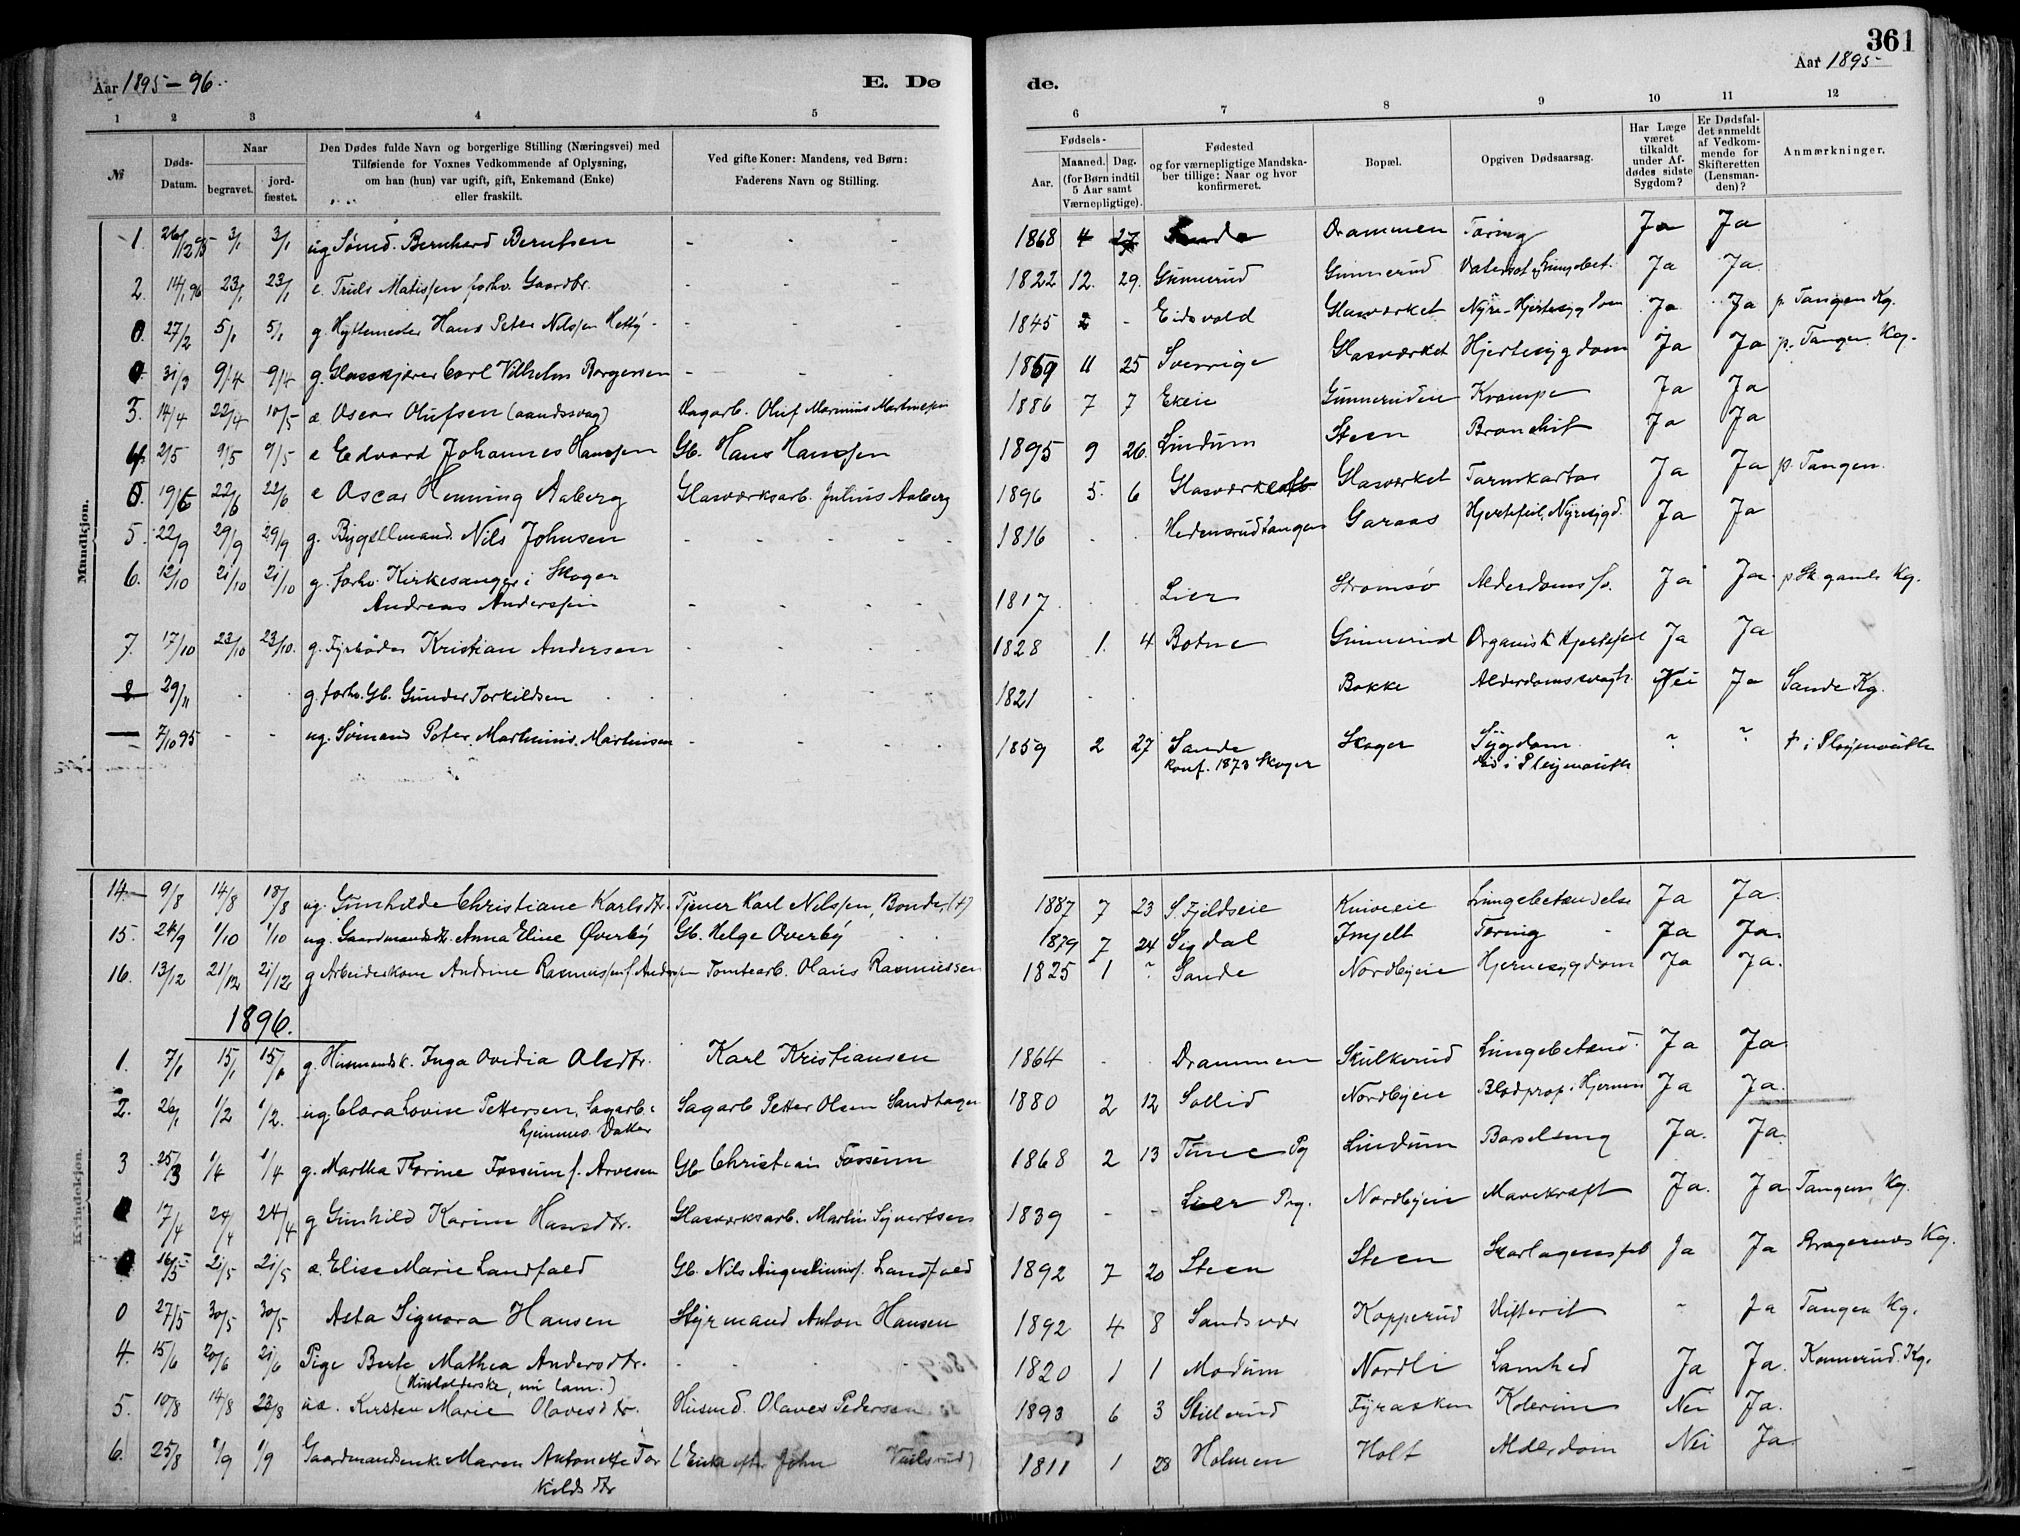 361
Aar 1895-96.
E. Dø
de.
Aar 1895
1 2 3 4 5
6 7 8 9 10 11 12
№
Døds-Datum.
Naar
begravet.
jordfæstet.
Den Dødes fulde Navn og borgerlige Stilling (Næringsvei) med
Tilføiende for Voxnes Vedkommende af Oplysning,
om han (hun) var ugift, gift, Enkemand (Enke)
eller fraskilt.
Ved gifte Koner: Mandens, ved Børn:
Faderens Navn og Stilling.
Fødsels-
Aar.
Maaned. Dag.
(for Børn indtil
5 Aar samt
Værnepligtige).
Fødested
og for værnepligtige Mandska-
ber tillige: Naar og hvor
konfirmeret.
Bopæl.
Opgiven Dødsaarsag.
Har Læge
været
tilkaldt
under Af-
dødes sidste
Sygdom?
Er Dødsfal-
det anmeldt
af Vedkom-
mende for
Skifteretten
(Lensman-
den)?
Anmærkninger.
Mandkjøn.
1. 26/12 95 3/1 3/1 ug Sømd. Bernhard Berntsen - - - 1868 4 27 Sande Drammen Tæring Ja Ja
2. 14/1 96 23/1 23/1 e. Truls Matissen forhv. Gaardbr. - - - 1822 12. 29. Gunnerud Gunnerud Ja Ja
0. 27/2 5/ 5/ g. Hyttemester Hans Peter Nilssen - - - 1845 2 - Eidsvold Glasværket Nyre-Hjertesygdom Ja Ja p. Tangen Kg.
0 31/3 9/4 9/4 g. Glasskjærer Carl Vilhelm Borgersen - - - 1859 11 25 Sverrige Glasværket Hjertesygdom Ja Ja p. Tangen Kg.
3. 14/4 22/4 10/5 æ Oscar Olufsen (aandssvag) Dagarb. Oluf Marinius Martinsen 1886 7 7 Ekeie Gunnerudeie Krampe Ja Ja
4. 2/5 9/5 9/5 e Edvard Johannes Hanssen Gb. Hans Hanssen 1895 9 26. Lindum Steen Bronchit Ja Ja
0. 19/6 22/6 22/6 e Oscar Henning Aaberg Glasværksarb. Julius Aaberg 1896 5. 6 Glasværket Glasværket Tarmkatar Ja Ja p. Tangen.
5. 22/9 29/9 29/9 g. Bygselmand Nils Johnsen - - - 1816 - - Hedensrudtangen Garaas Hjertefeil, Nyresygd. Ja Ja
6. 12/10 21/10 21/10 g. forhv. Kirkesanger i Skoger
Andreas Anderssen - - - 1817. - - Lier Strømsø Alderdomssv. Ja Ja p Sk. gamle Kg.
7. 17/10 23/10 23/10. g. Fyrbøder Kristian Andersen 1828 1. 4 Botne Gunnerud Organisk Hjertefeil Ja Ja
8 29/11 - - g. forhv. Gb. Gunder Torkildsen 1821 - - Bakke Alderdomssvagh. Nei Ja Sande Kg.
— 7/10 95 - - ug. Sømand Peter Martinius Martinsen - - - 1859 2 27 Sande Skoger Sygdom " "
konf. 1873 Skoger
Kvindekjøn.
14 9/8 14/8 18/8 ug. Gunhilde Christiane Karlsdtr. Tjener Karl Nilssen, Bonde(†) 1887 7 23 S. Fjeldseie Kniveeie Lungebetændelse Ja Ja.
15. 24/9 1/10 1/10 ug. Gaardmandsdt. Anna Eline Øverby Gb. Helge Overby 1879 7 24 Sigdal Imjelt Tæring Ja Ja.
16. 13/12 21/12 21/12 g Arbeiderkone Andrine Rasmussen f. Andersen Tomtearb. Olaus Rasmussen 1825 1 ? Sande Nordbyeie Hjernesygdom Ja Ja.
1896.
1. 7/1 15/1 15/1 g. Husmandsk. Inga Ovidia Olsdtr. Karl Kristiansen 1864 - - Drammen Skulkerud Lungebetænd. Ja Ja
2. 26/1 1/2 1/2. ug. Clara Lovise Pettersen, Sagarb.s
hjemmev. Datter Sagarb Petter Olsen Sandhagen 1880 2 12 Sollid Nordbyeie Blodprop i Hjernen Ja Ja.
3 25/3 1/4 1/4 g. Martha Thorine Fossum f. Arvesen Gb Christian Fossum 1868 2 13 Tune Pg Lindum Barselseng Ja. Ja.
17/4 24/4 24/4 g Gunhild Karine Hansdtr. Glasværksarb. Martin Syvertsen 1839 - - Lier Prg. Nordbyeie Mavekræft Ja. Ja Tangen Kg.
16/5 21/5 21/5 æ. Elise Marie Landfald Gb. Nils Augustiniusf. Landfald 1892 7 20 Steen Steen Skarlagensfeb Ja Ja Bragernæs Kg.
0 27/5 30/5 30/5 Asta Signora Hansen Styrmand Anton Hansen 1892 4 8 Sandsvær Kopperud Difterit " Ja Tangen Kg.
4. 15/6 20/6 21/6 Pige Berte Mathea Andersdtr.
(Husholderske, nu lam.) - - - 1820 1 1 Modum Nordli Lamhed Ja Ja. Konnerud Kg.
5. 10/8 14/8 23/8 uæ. Kirsten Marie Olavesdtr. Husmd. Olaves Pedersen 1893 6 3 Stillerud Fyraaken Kolerine Nei Ja.
6. 25/8 1/9 1/9 Gaardmandsenke Maren Antonette Tor
kildsdtr (Enke efter John Vailsrud) 1811 1 28 Holmen Holt Alderdom Nei Ja.